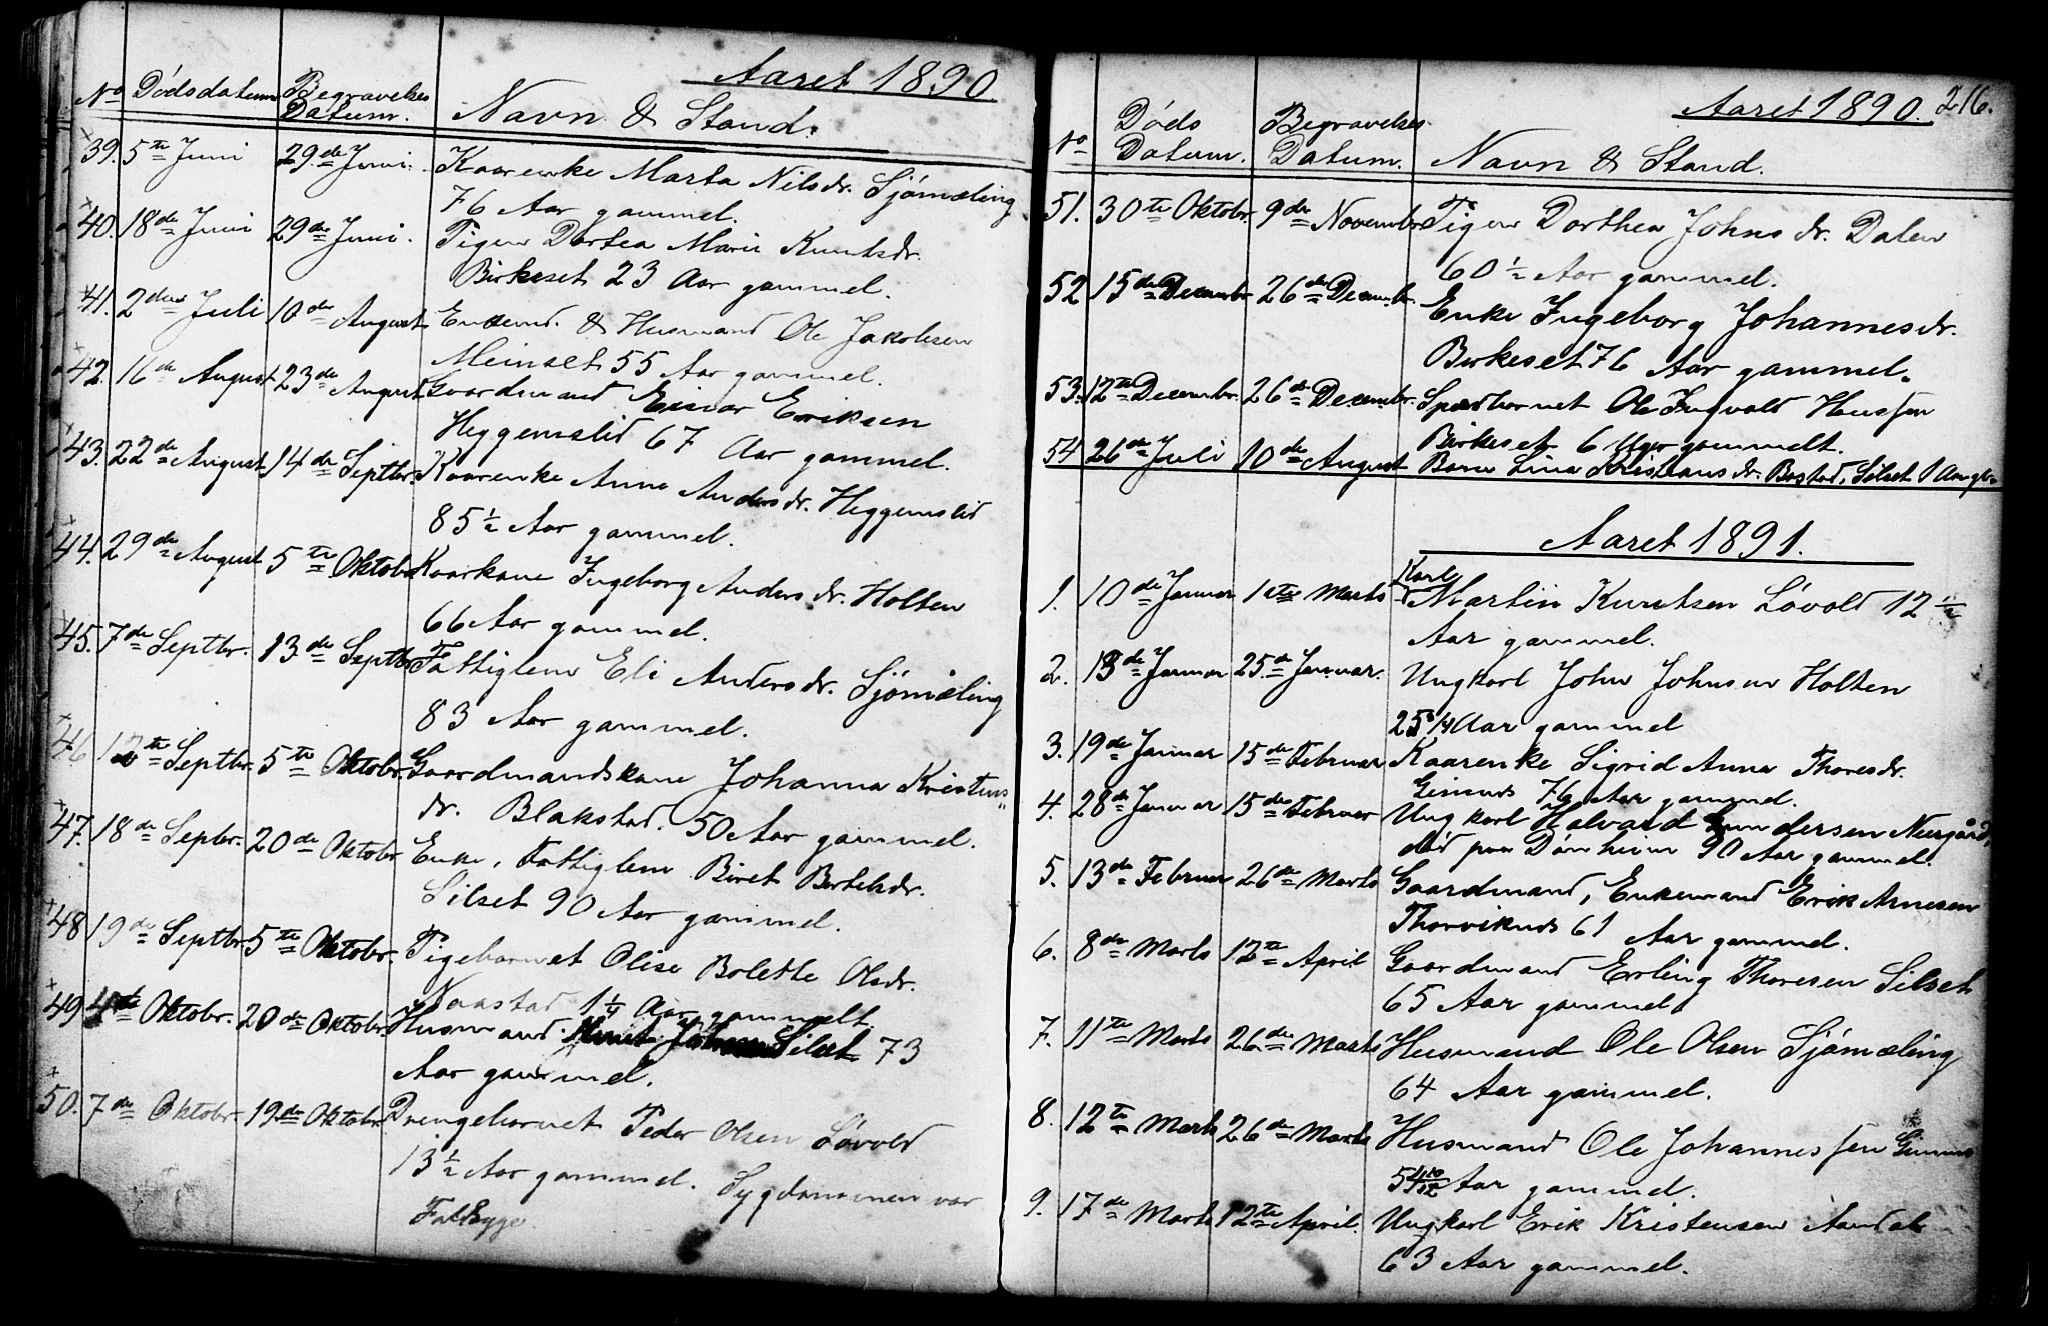 Aaret 1890.
No Dödsdatum Begravelses Datum. Navn & Stand.
39. 5te Juni 29de Juni. Kaarenke Marta Nilsdr. Sjömæling
76 Aar gammel.
40. 18de Juni 29de Juni. Pigen Dortea Marie Knutsdr.
Birkeset 23 Aar gammel.
41. 2den Juli 10de August Enkemd. & Husmand Ole Jakobsen
Meinset 55 Aar gammel.
42. 16de August 23de August Gaardmand Einar Eriksen
Heggemslid 67 Aar gammel.
43. 22de August 14de Septbr. Kaarenke Anne Andersdr. Heggemslid
85 1/2 Aar gammel.
44. 29de August 5te Oktobr Kaarkone Ingeborg Andersdr. Holten
66 Aar gammel.
45. 7de Septbr. 13de Septbr Fattiglem Eli Andersdr. Sjömæling
83 Aar gammel.
46 12te Septbr. 5te Oktobr. Gaardmandskone Johanna Kristens
dr. Blakstad. 50 Aar gammel.
47. 18de Septbr. 20de Oktobr Enke, Fattiglem Biret Bertelsdr.
Silset 90 Aar gammel.
48 19de Septbr 5te Oktobr. Pigebarnet Olise Bolette Olsdr.
Naastad 1 1/4 Aar gammelt.
49 4de Oktobr. 20de Oktobr. Husmand Silset 73
Aar gammel.
50. 7de Oktobr. 19de Oktobr. Drengebarnet Peder Olsen Lövold
13 1/2 Aar gammel. Sygdommen var
Faldsyge.
Aaret 1890. 216.
No Döds Datum. Begravelses Datum. Navn & Stand.
51. 30te Oktobr. 9de Novembr Pigen Dorthea Johnsdr. Dalen
60 1/2 Aar gammel.
52 15de Decembr 26de Decembr. Enke Ingeborg Johannesdr.
Birkeset 76 Aar gammel.
53. 12te Decembr. 26de Decembr. Spædbarnet Ole Ingvald Hanssen
Birkeset 6 Uger gammelt.
54 26de Juli 10de August Barn Lina Kristiansdr. Bostad, Silset 1 Aar gl.
Aaret 1891.
1. 10de Januar 1ste Marts Karl Martin Knutsen Lövold 12 1/2
Aar gammel.
2. 13de Januar 25de Januar. Ungkarl John Johnsen Holten
25 3/4 Aar gammel
3. 19de Januar 15de Februar Kaarenke Sigrid Anna Thoresdr.
Gimnes 76 Aar gammel.
4. 28de Januar 15de Februar Ungkarl Halvard Gundersen Neergård,
död paa Dönheim 90 Aar gammel.
5. 13de Februar 26de Marts Gaardmand, Enkemand Erik Arnesen
Thorviknes 61 Aar gammel.
6. 8de Marts 12te April Gaardmand Erling Thoresen Silset
65 Aar gammel
7. 11te Marts 26de Marts Husmand Ole Olsen Sjömæling
64 Aar gammel.
8. 12te Marts 26de Marts Husmand Ole Johannessen Gimnes
54 10/12 Aar gammel.
9. 17de Marts 12te April. Ungkarl Erik Kristensen Aandal
63 Aar gammel.